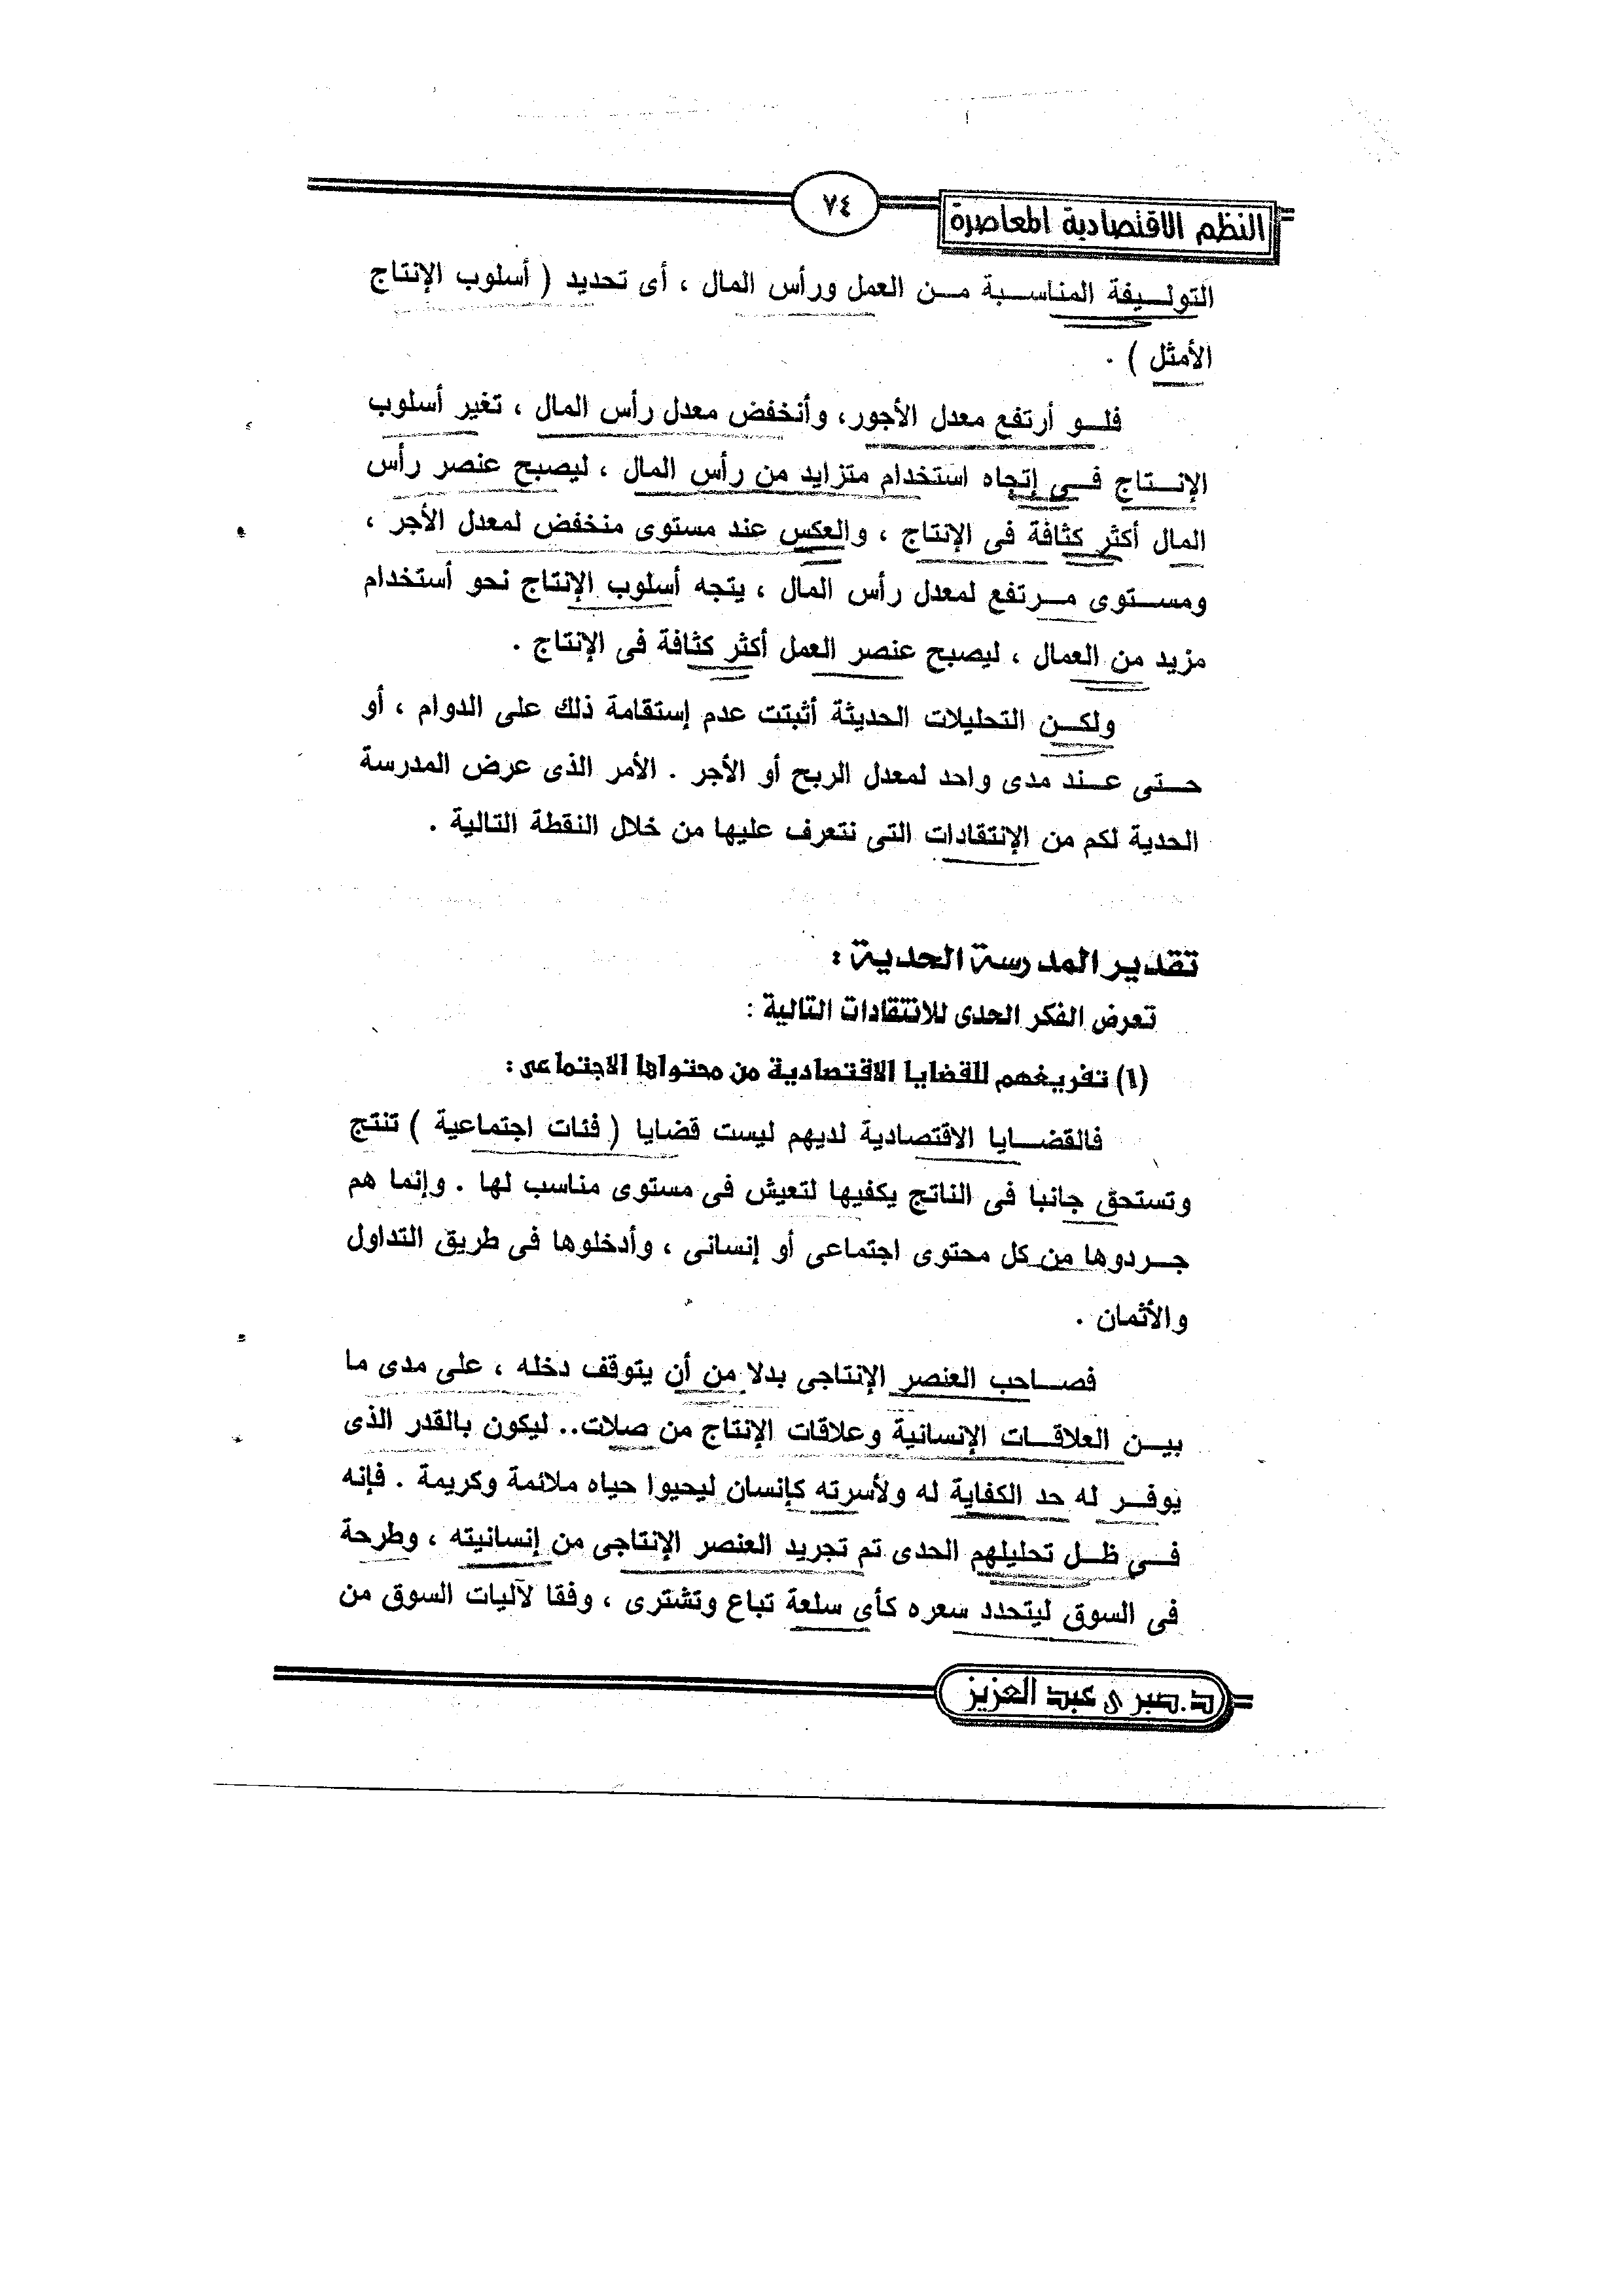 النظم الاقتصادية المعاصرة
٧٤
التوليفة المناسبة من العمل ورأس المال ، أى تحديد ( أسلوب الإنتاج
الأمثل ) .
فلو أرتفع معدل الأجور، وأنخفض معدل رأس المال ، تغير أسلوب
الإنتاج فى إتجاه استخدام متزايد من رأس المال ، ليصبح عنصر رأس
المال أكثر كثافة فى الإنتاج ، والعكس عند مستوى منخفض لمعدل الأجر ،
ومستوى مرتفع لمعدل رأس المال ، يتجه أسلوب الإنتاج نحو أستخدام
مزيد من العمال ، ليصبح عنصر العمل أكثر كثافة فى الإنتاج .
ولكن التحليلات الحديثة أثبتت عدم إستقامة ذلك على الدوام ، أو
حتى عند مدى واحد لمعدل الربح أو الأجر . الأمر الذى عرض المدرسة
الحدية لكم من الإنتقادات التى نتعرف عليها من خلال النقطة التالية .
تقدير المدرسة الحدية :
تعرض الفكر الحدى للانتقادات التالية :
(١) تفريغهم للقضايا الاقتصادية من محتواها الاجتماعى :
فالقضايا الاقتصادية لديهم ليست قضايا ( فئات اجتماعية ) تنتج
وتستحق جانبا فى الناتج يكفيها لتعيش فى مستوى مناسب لها . وإنما هم
جردوها من كل محتوى اجتماعى أو إنسانى ، وأدخلوها فى طريق التداول
والأثمان .
فصاحب العنصر الإنتاجى بدلا من أن يتوقف دخله ، على مدى ما
بين العلاقات الإنسانية وعلاقات الإنتاج من صلات.. ليكون بالقدر الذى
يوفر له حد الكفاية له ولأسرته كإنسان ليحيوا حياه ملائمة وكريمة . فإنه
فى ظل تحليلهم الحدى تم تجريد العنصر الإنتاجى من إنسانيته ، وطرحة
فى السوق ليتحدد سعره كأى سلعة تباع وتشترى ، وفقا لآليات السوق من
د.صبرى عبد العزيز